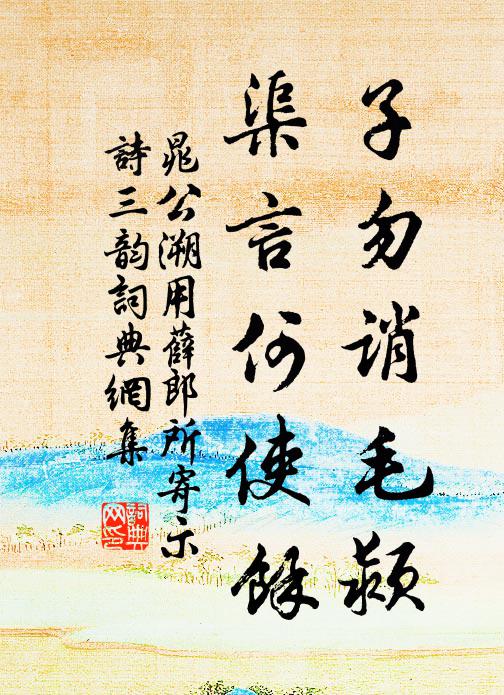 子勿誚毛颖
渠言何使餘
晁公溯用薛郎所寄示
詩三韵詞典網集
詞典